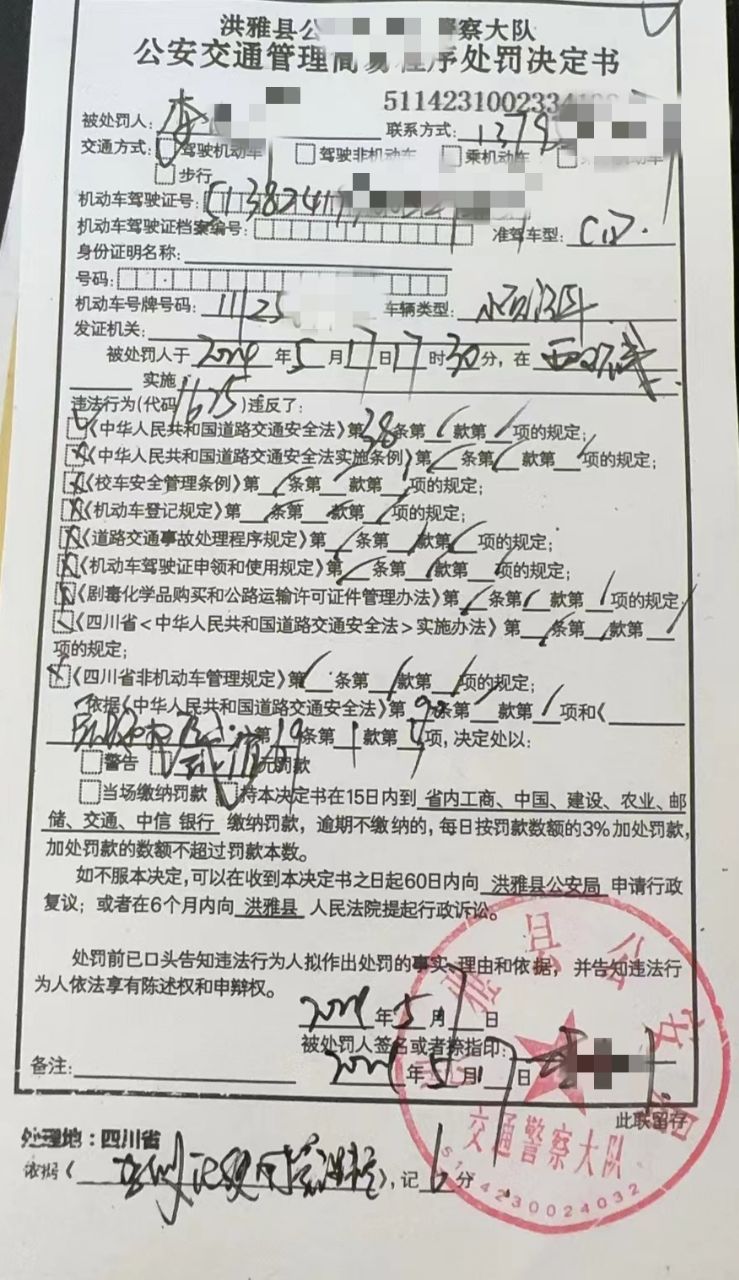 洪雅县公 察大队
公安交通管理简易程序处罚决定书
5114231002334
被处罚人:李 联系方式:1378
交通方式: 驾驶机动车 驾驶非机动车 乘机动车
步行
机动车驾驶证号:51382419
机动车驾驶证档案编号: 准驾车型:C1D.
身份证明名称:
号码:
机动车号牌号码:11125 车辆类型:
发证机关:
被处罚人于2024年5月17日17时30分,在
实施
违法行为(代码1625)违反了:
《中华人民共和国道路交通安全法》第38条第/款第/项的规定;
《中华人民共和国道路交通安全法实施条例》第/条第/款第/项的规定;
《校车安全管理条例》第/条第/款第/项的规定;
《机动车登记规定》第/条第/款第/项的规定;
《道路交通事故处理程序规定》第/条第/款第/项的规定;
《机动车驾驶证申领和使用规定》第/条第/款第/项的规定;
《剧毒化学品购买和公路运输许可证件管理办法》第/条第/款第/项的规定;
《四川省<中华人民共和国道路交通安全法>实施办法》第/条第/款第/
项的规定;
《四川省非机动车管理规定》第/条第/款第/项的规定;
依据《中华人民共和国道路交通安全法》第90条第/款第/项和《
第19条第1款第 项,决定处以:
警告 元罚款
当场缴纳罚款 持本决定书在15日内到 省内工商、中国、建设、农业、邮
储、交通、中信 银行 缴纳罚款,逾期不缴纳的,每日按罚款数额的3%加处罚款,
加处罚款的数额不超过罚款本数。
如不服本决定,可以在收到本决定书之日起60日内向 洪雅县公安局 申请行政
复议;或者在6个月内向 洪雅县 人民法院提起行政诉讼。
处罚前已口头告知违法行为人拟作出处罚的事实、理由和依据,并告知违法行
为人依法享有陈述权和申辩权。
2024年5月17日
被处罚人签名或者捺指印:
2024年5月17日
备注:
此联留存
处理地:四川省
依据《 》,记6分
洪雅县公安局
交通警察大队
5114230024032